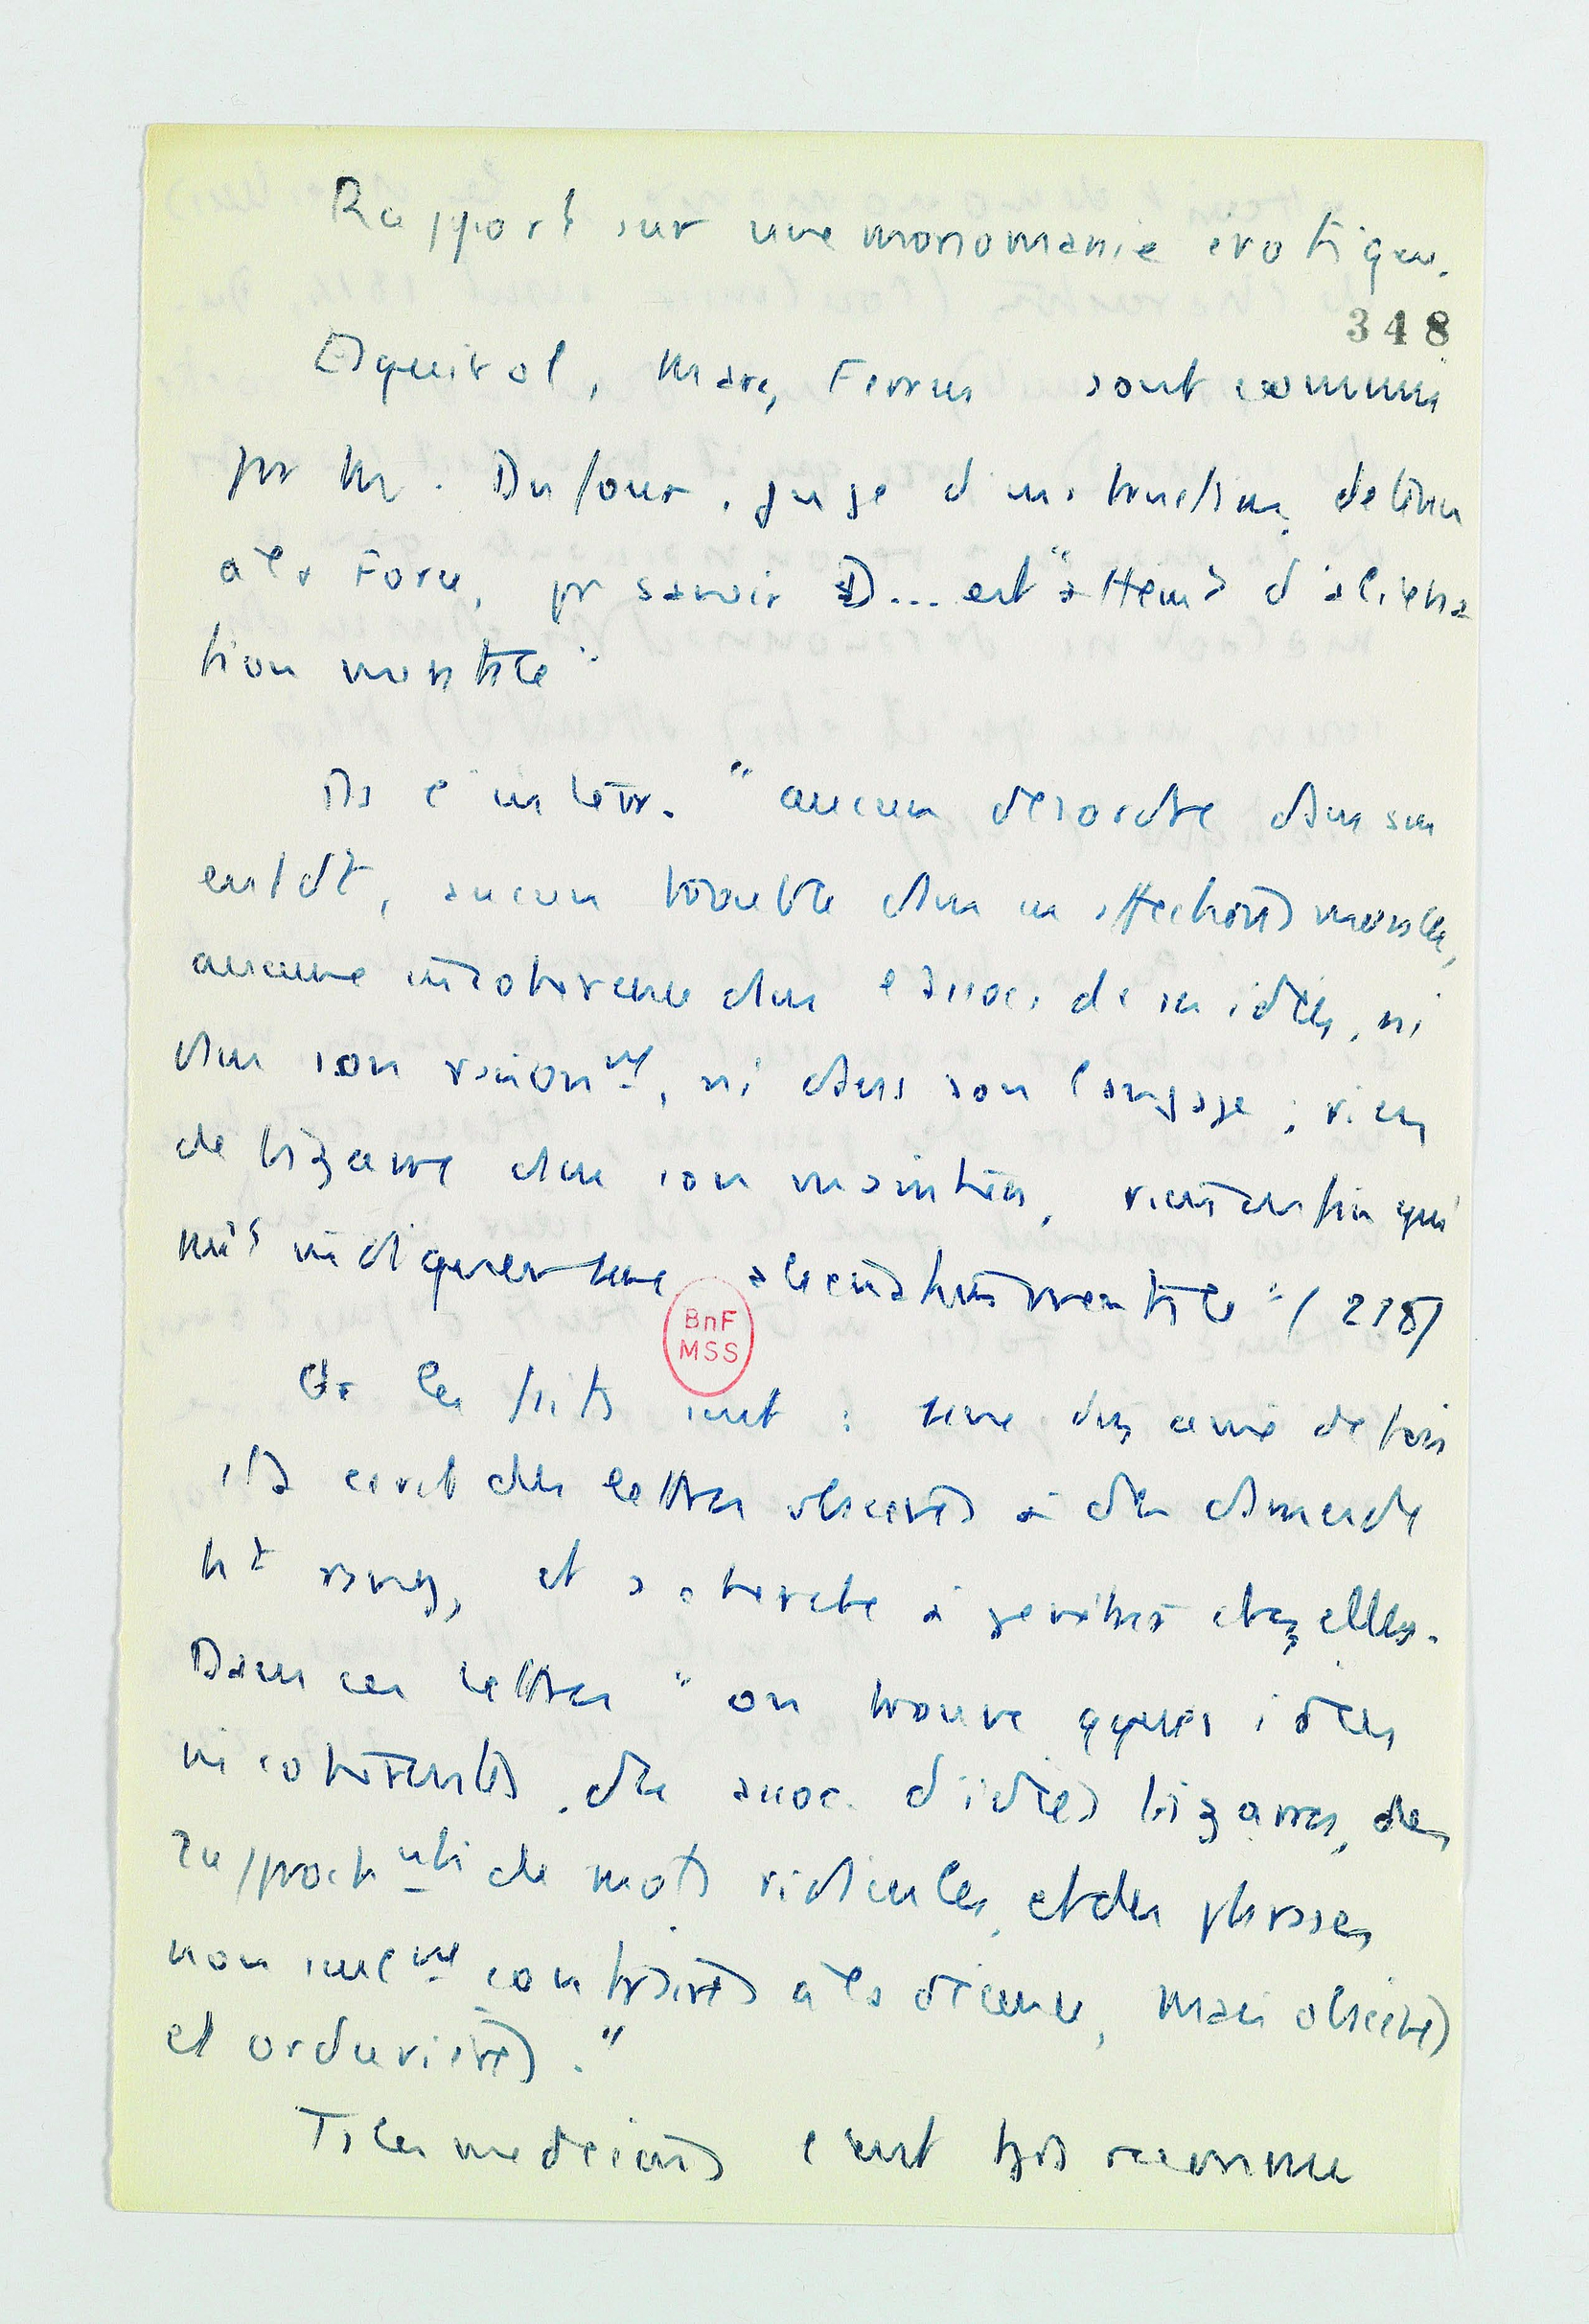 Rapport sur une monomanie érotique.
348
Esquirol, Marc, Ferrus sont commis
pr Mr. Dufour, juge d'instruction, detenu
à la Force, pr savoir si D... est "atteint d'aliena
tion mentale"
Ds l'interr. "aucun désordre dans son
entdt, aucun trouble dans ses affections morales,
aucune incohérence dans l'assoc. de ses idées, ni
dans son raisonnt, ni dans son langage ; rien
de bizarre dans son maintien, rien enfin qui
puisse indiquer une aliénation mentale" (218)
Or les faits sont : une dizaine de fois
il a écrit des lettres obscènes à des dames de
ht rang, et a cherché à pénétrer chez elles.
Dans ces lettres "on trouve qques idées
incohérentes, des assoc. d'idées bizarres, des
rapprochnts de mots ridicules, et des phrases
non seult contraires à la décence, mais obscènes
et ordurières."
Ts les médecins l'ont tjs reconnu
BnF
MSS